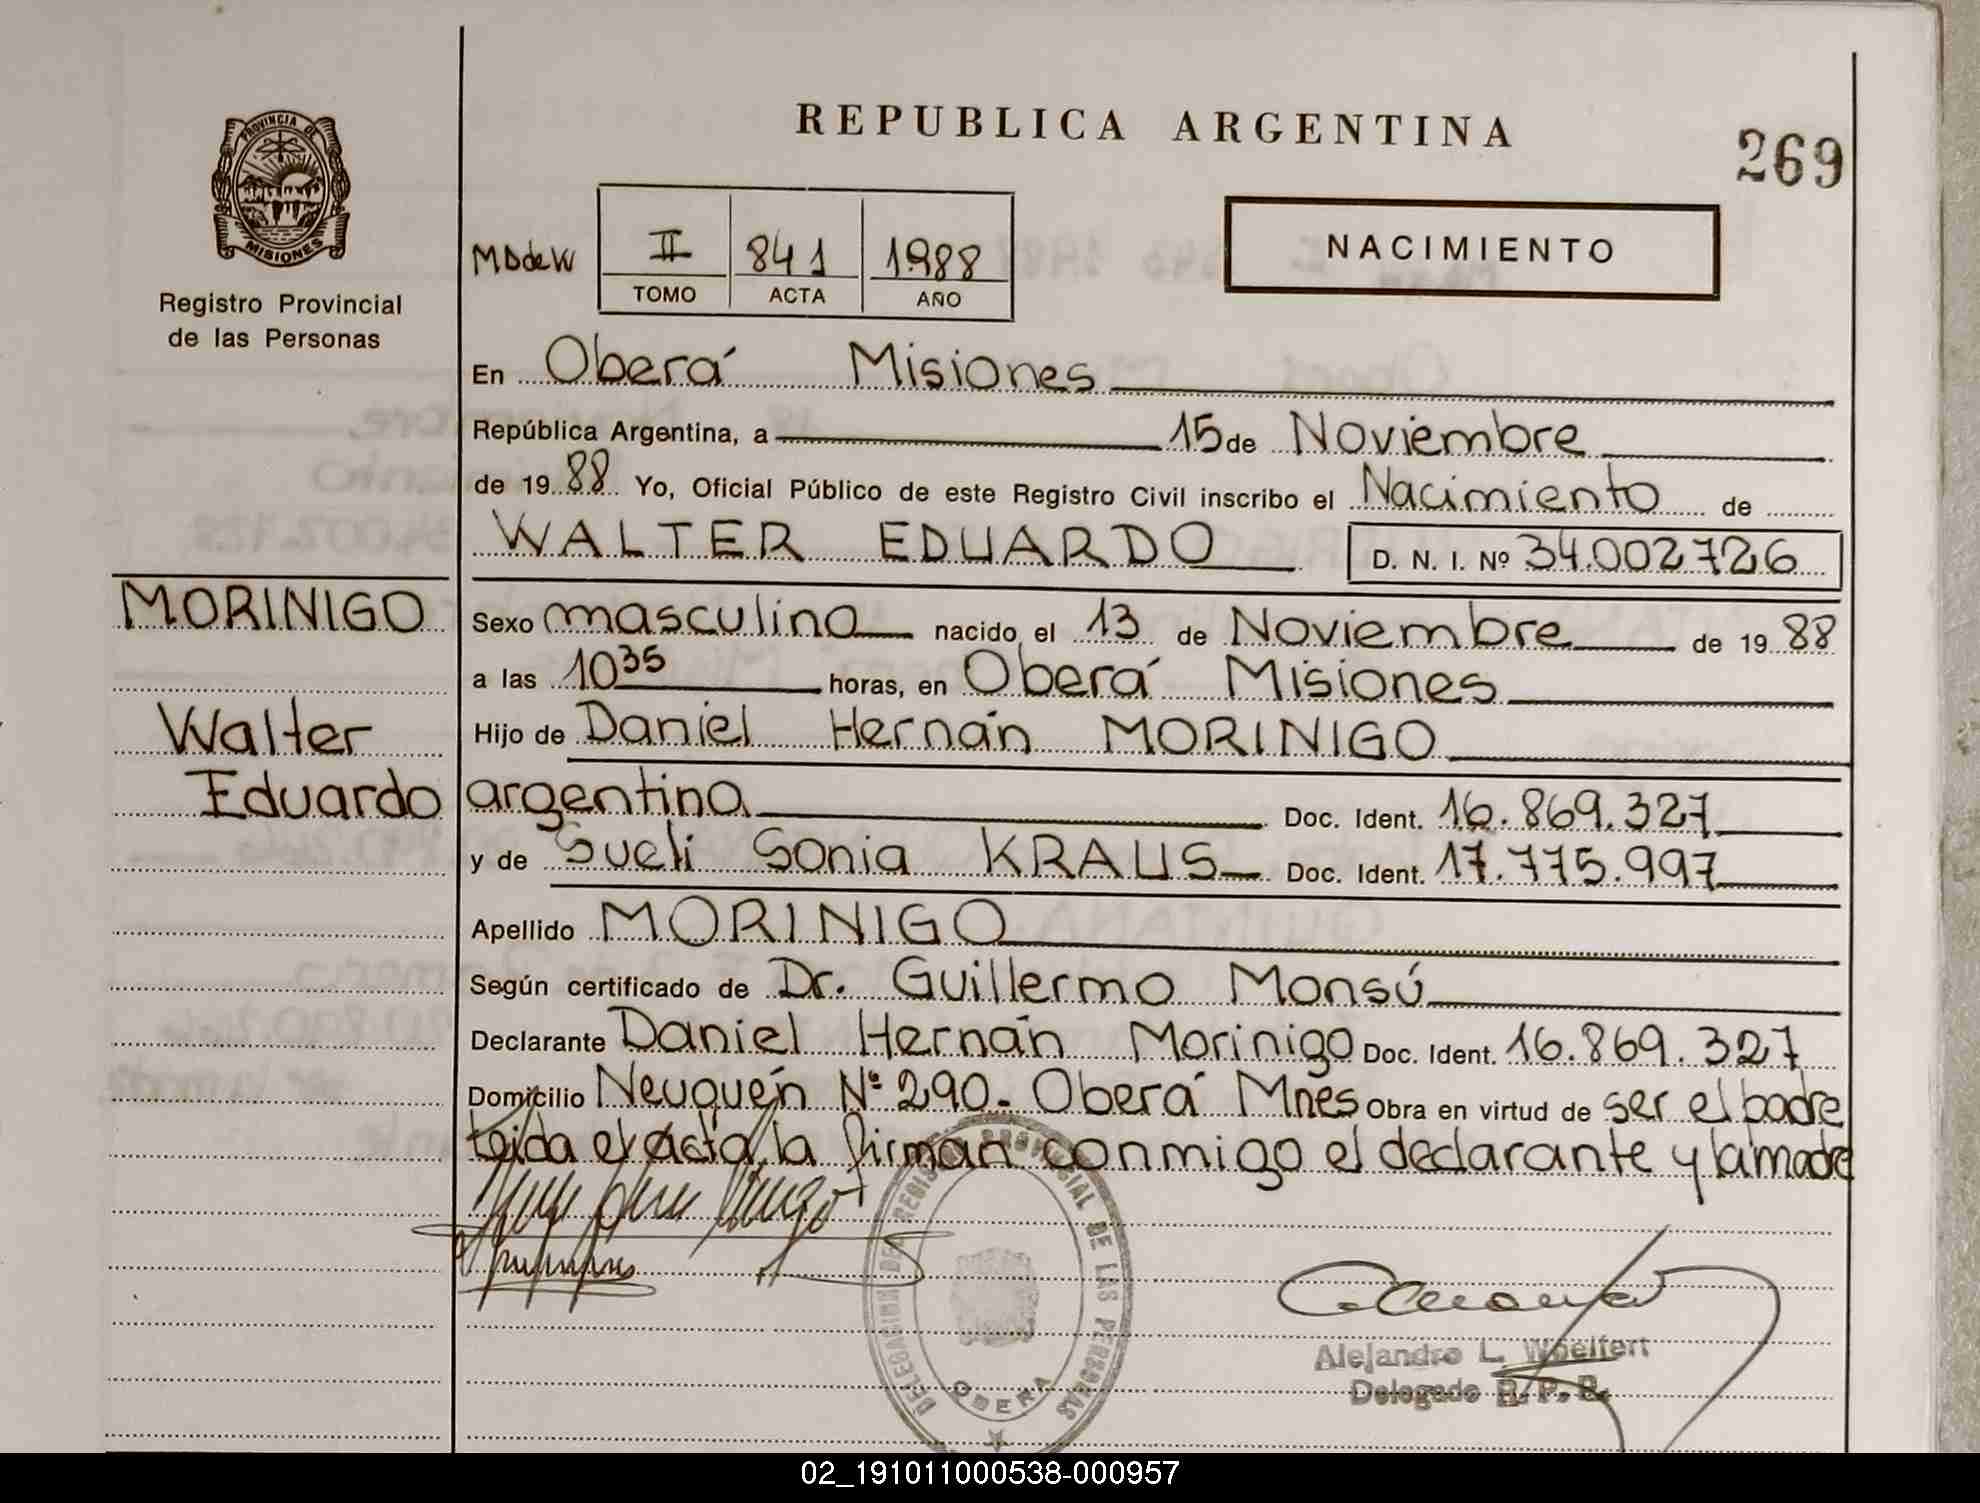 REPUBLICA ARGENTINA
269
PROVINCIA DE
MISIONES
Registro Provincial
de las Personas
MDdeW
II 841 1988
TOMO ACTA AÑO
NACIMIENTO
En Oberá Misiones
República Argentina, a 15 de Noviembre
de 1988 Yo, Oficial Público de este Registro Civil inscribo el Nacimiento de
WALTER EDUARDO D. N. I. Nº 34.002726
MORINIGO
Walter
Eduardo
Sexo masculino nacido el 13 de Noviembre de 1988
a las 10 35 horas, en Oberá Misiones
Hijo de Daniel Hernán MORINIGO
argentina Doc. Ident. 16.869.327
y de Sueli Sonia KRAUS Doc. Ident. 17.775.997
Apellido MORINIGO
Según certificado de Dr. Guillermo Monsú
Declarante Daniel Hernán Morinigo Doc. Ident. 16.869.327
Domicilio Neuquén Nº 290- Oberá Mnes Obra en virtud de ser el padre
leida el acta, la firman conmigo el declarante y la madre
DELEGACION DEL REGISTRO PROVINCIAL DE LAS PERSONAS
OBERA
Alejandro L. Woelfert
Delegado R. P. P.
02_191011000538-000957